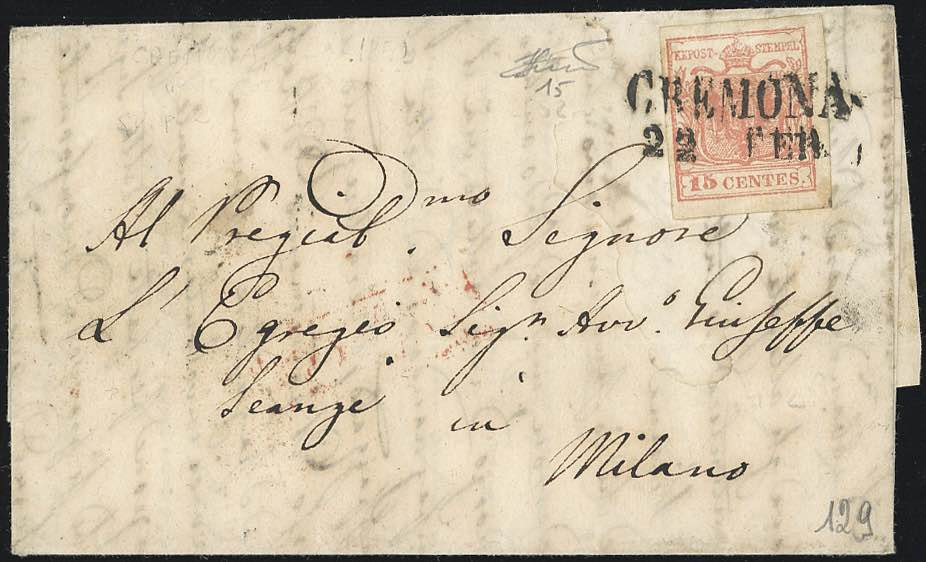 KKPOST-STEMPEL
CREMONA
22 FEB.
15 CENTES.
15
Al Pregiab.mo Signore
L' Egregio Sig.n Avv.o Giuseffe
in
Milano
129